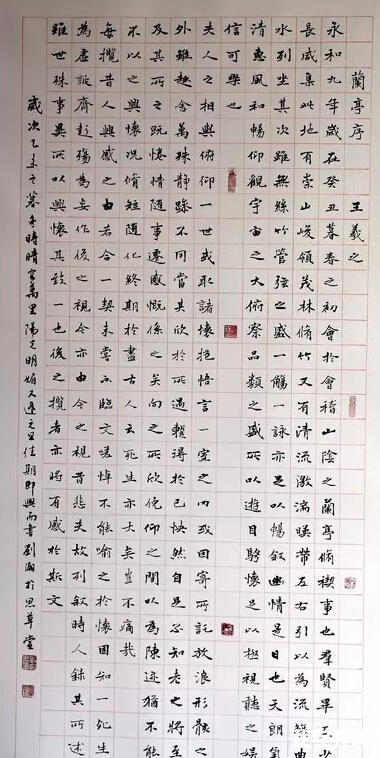 蘭亭序 王羲之
永和九年歲在癸丑暮春之初會於會稽山陰之蘭亭脩禊事也群賢畢至少
長咸集此地有崇山峻領茂林脩竹又有清流激湍暎帶左右引以為流觴曲
水列坐其次雖無絲竹管弦之盛一觴一詠亦足以暢敘幽情是日也天朗氣
清惠風和暢仰觀宇宙之大俯察品類之盛所以遊目騁懷足以極視聽之娛
信可樂也
夫人之相與俯仰一世或取諸懷抱悟言一室之內或因寄所託放浪形骸之
外雖趣舍萬殊靜躁不同當其欣於所遇蹔得於己怏然自足不知老之將至
及其所之既惓情隨事遷感慨係之矣向之所欣俛仰之閒以為陳迹猶不能
不以之興懷況脩短隨化終期於盡古人云死生亦大矣豈不痛哉
每攬昔人興感之由若合一契未嘗不臨文嗟悼不能喻之於懷固知一死生
為虛誕齊彭殤為妄作後之視今亦由今之視昔悲夫故列敘時人錄其所述
雖世殊事異所以興懷其致一也後之攬者亦將有感於斯文
歲次乙未之暮冬時晴空萬里陽光明媚又逢元旦佳期即興而書劉於思草堂